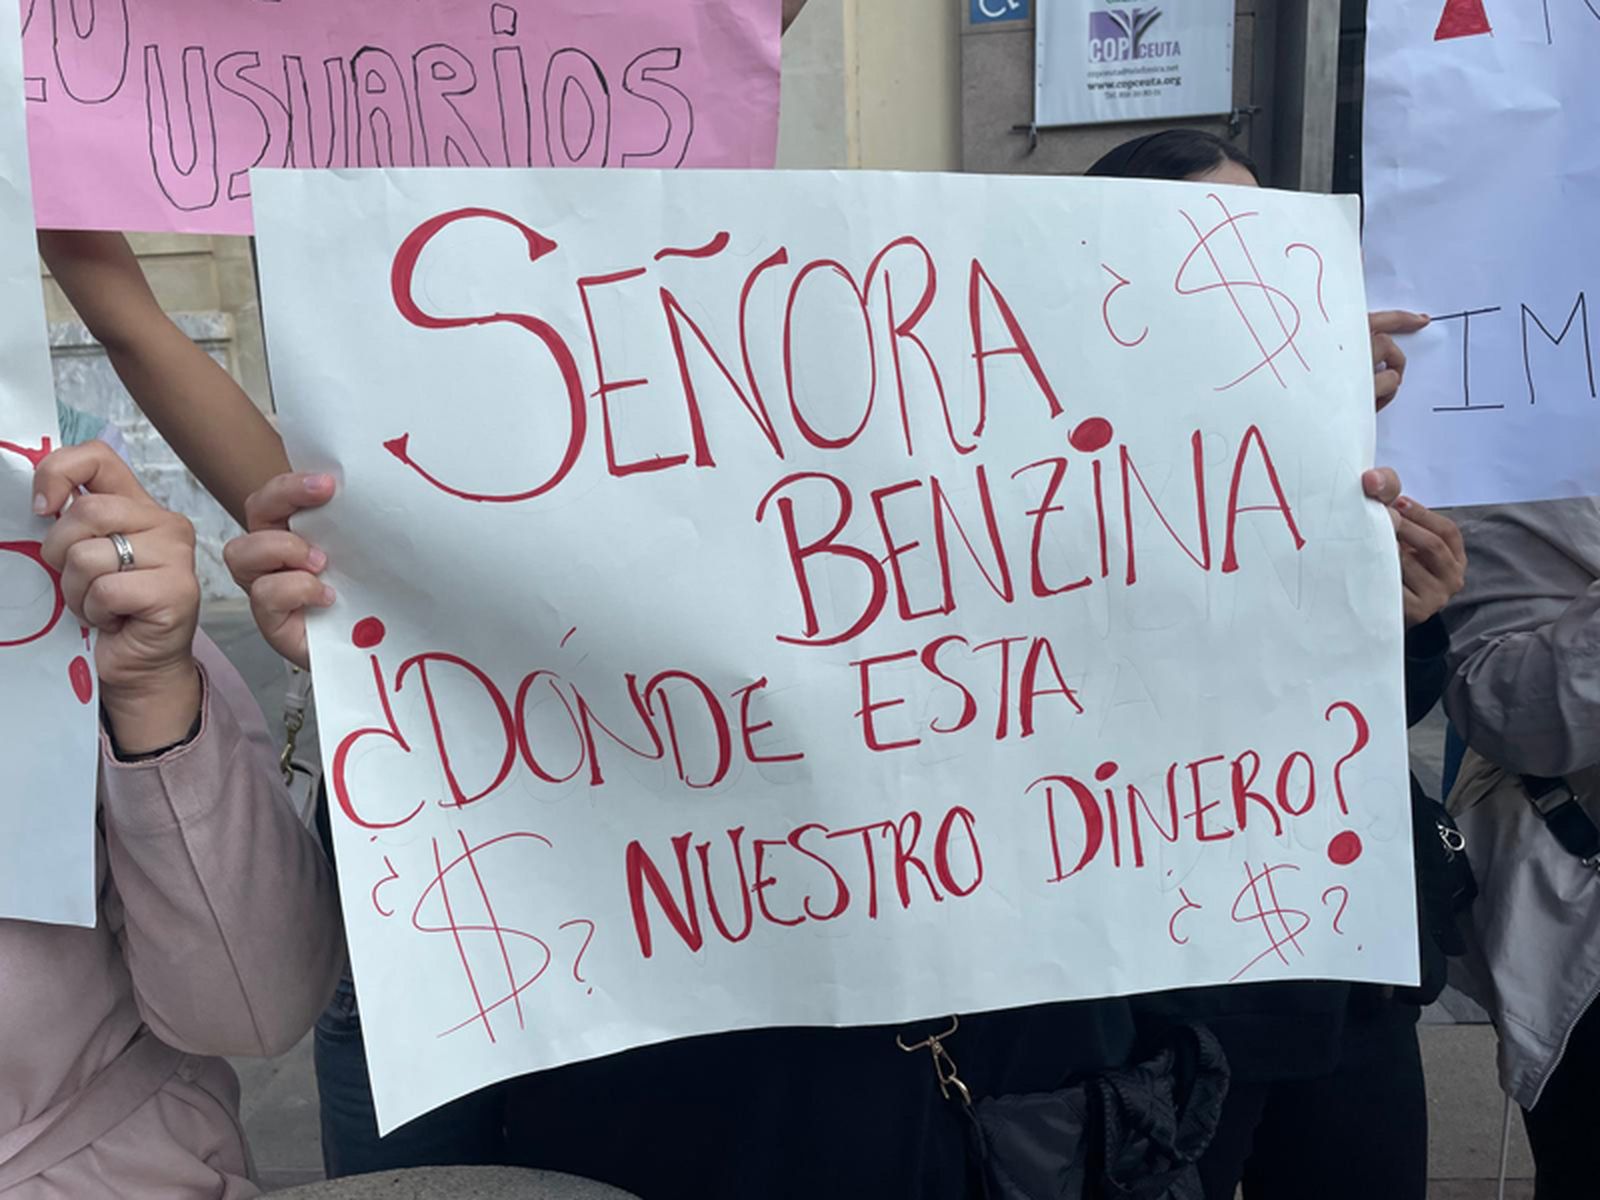 USUARIOS
COP CEUTA
copceuta@telefonica.net
www.copceuta.org
SEÑORA ¿$?
BENZINA
¿DÓNDE ESTA
NUESTRO DINERO?
¿$? ¿$?
IM